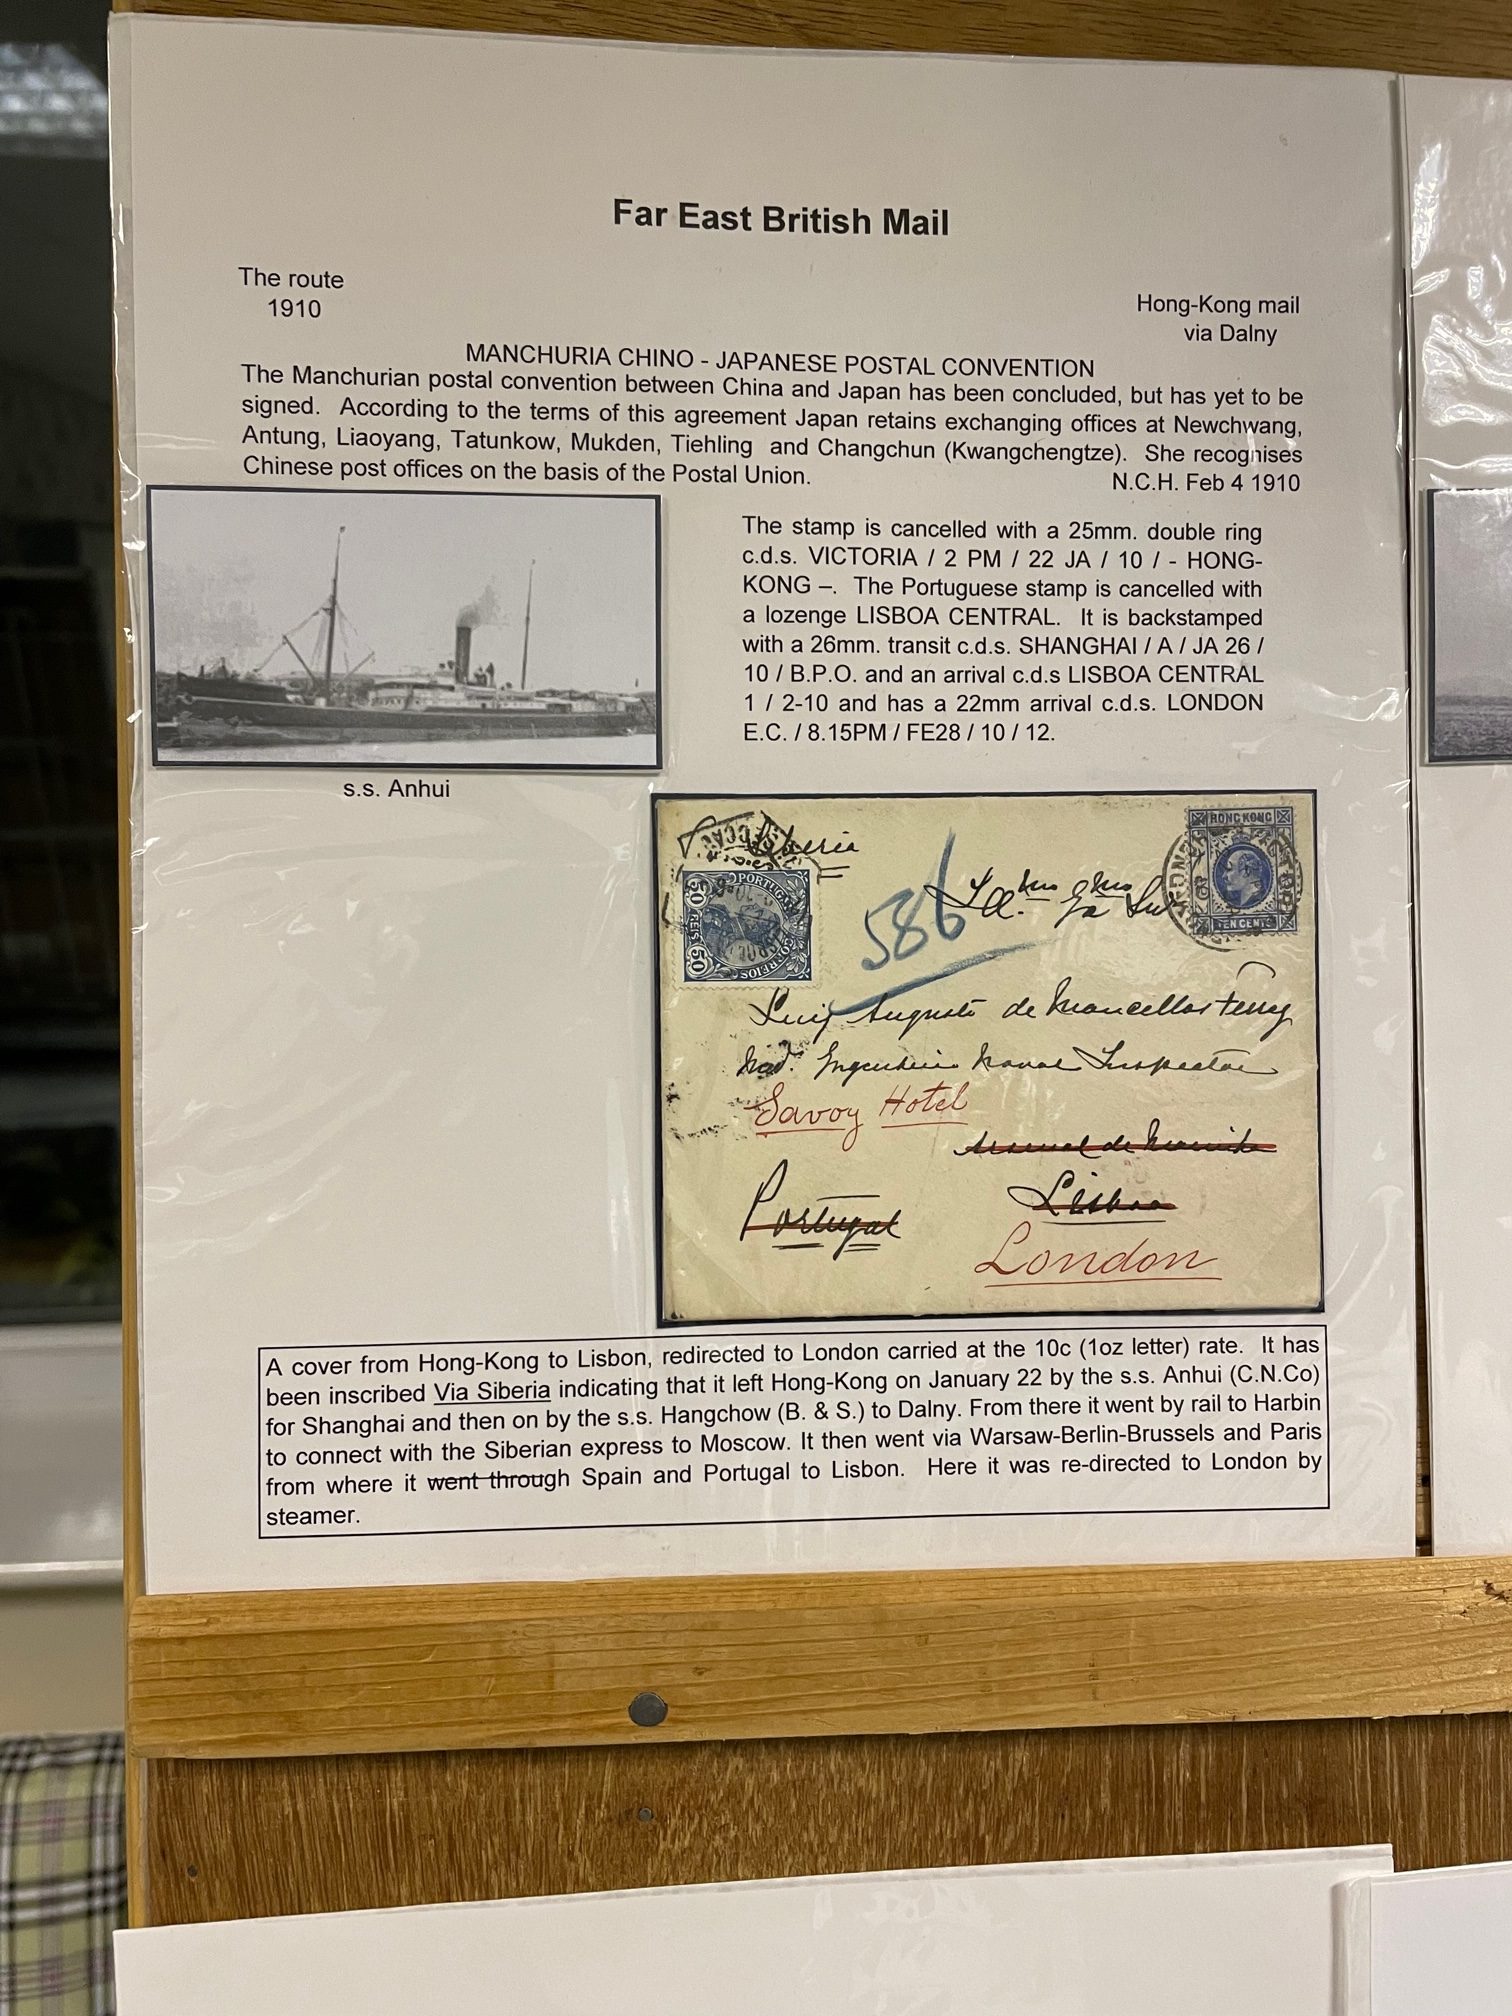 Far East British Mail
The route
1910
Hong-Kong mail
via Dalny
MANCHURIA CHINO - JAPANESE POSTAL CONVENTION
The Manchurian postal convention between China and Japan has been concluded, but has yet to be
signed. According to the terms of this agreement Japan retains exchanging offices at Newchwang,
Antung, Liaoyang, Tatunkow, Mukden, Tiehling and Changchun (Kwangchengtze). She recognises
Chinese post offices on the basis of the Postal Union.
N.C.H. Feb 4 1910
The stamp is cancelled with a 25mm. double ring
c.d.s. VICTORIA / 2 PM / 22 JA / 10 / - HONG-
KONG –. The Portuguese stamp is cancelled with
a lozenge LISBOA CENTRAL. It is backstamped
with a 26mm. transit c.d.s. SHANGHAI / A / JA 26 /
10 / B.P.O. and an arrival c.d.s LISBOA CENTRAL
1 / 2-10 and has a 22mm arrival c.d.s. LONDON
E.C. / 8.15PM / FE28 / 10 / 12.
s.s. Anhui
Siberia
HONG KONG
TEN CENTS
PORTUGAL
50 REIS 50
CORREIOS
586
Luiz Augusto de
Naval
Savoy Hotel
Arsenal de Marinha
Portugal
Lisboa
London
A cover from Hong-Kong to Lisbon, redirected to London carried at the 10c (1oz letter) rate. It has
been inscribed Via Siberia indicating that it left Hong-Kong on January 22 by the s.s. Anhui (C.N.Co)
for Shanghai and then on by the s.s. Hangchow (B. & S.) to Dalny. From there it went by rail to Harbin
to connect with the Siberian express to Moscow. It then went via Warsaw-Berlin-Brussels and Paris
from where it went through Spain and Portugal to Lisbon. Here it was re-directed to London by
steamer.